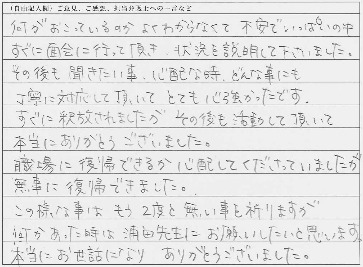 (自由記入欄) ご意見、ご感想、担当弁護士への一言など
何がおこっているのか よくわからなくて 不安でいっぱいの中
すぐに面会に行って頂き、状況を説明して下さいました。
その後も 聞きたい事、心配な時、どんな事にも
丁寧に対応して頂いて とても心強かったです。
すぐに釈放されましたが その後も活動して頂いて
本当にありがとうございました。
職場に復帰できるか心配してくださっていましたが
無事に復帰できました。
この様な事は もう2度と無い事を祈りますが
何かあった時は 浦田先生にお願いしたいと思います
本当にお世話になり ありがとうございました。